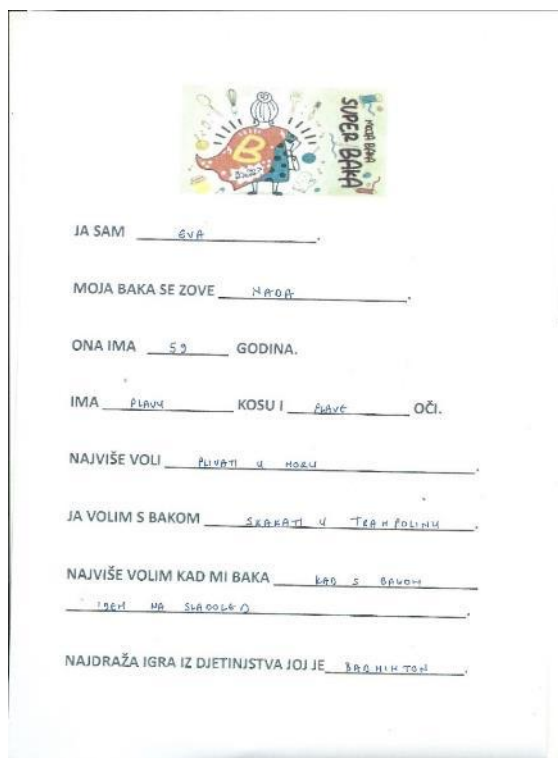 MOJA BAKA
SUPER BAKA
B
JA SAM EVA.
MOJA BAKA SE ZOVE NADA.
ONA IMA 59 GODINA.
IMA PLAVU KOSU I PLAVE OČI.
NAJVIŠE VOLI PLIVATI U MORU.
JA VOLIM S BAKOM SKAKATI U TRAMPOLINU.
NAJVIŠE VOLIM KAD MI BAKA KAD S BAKOM
IDEM NA SLADOLED.
NAJDRAŽA IGRA IZ DJETINJSTVA JOJ JE BADMINTON.